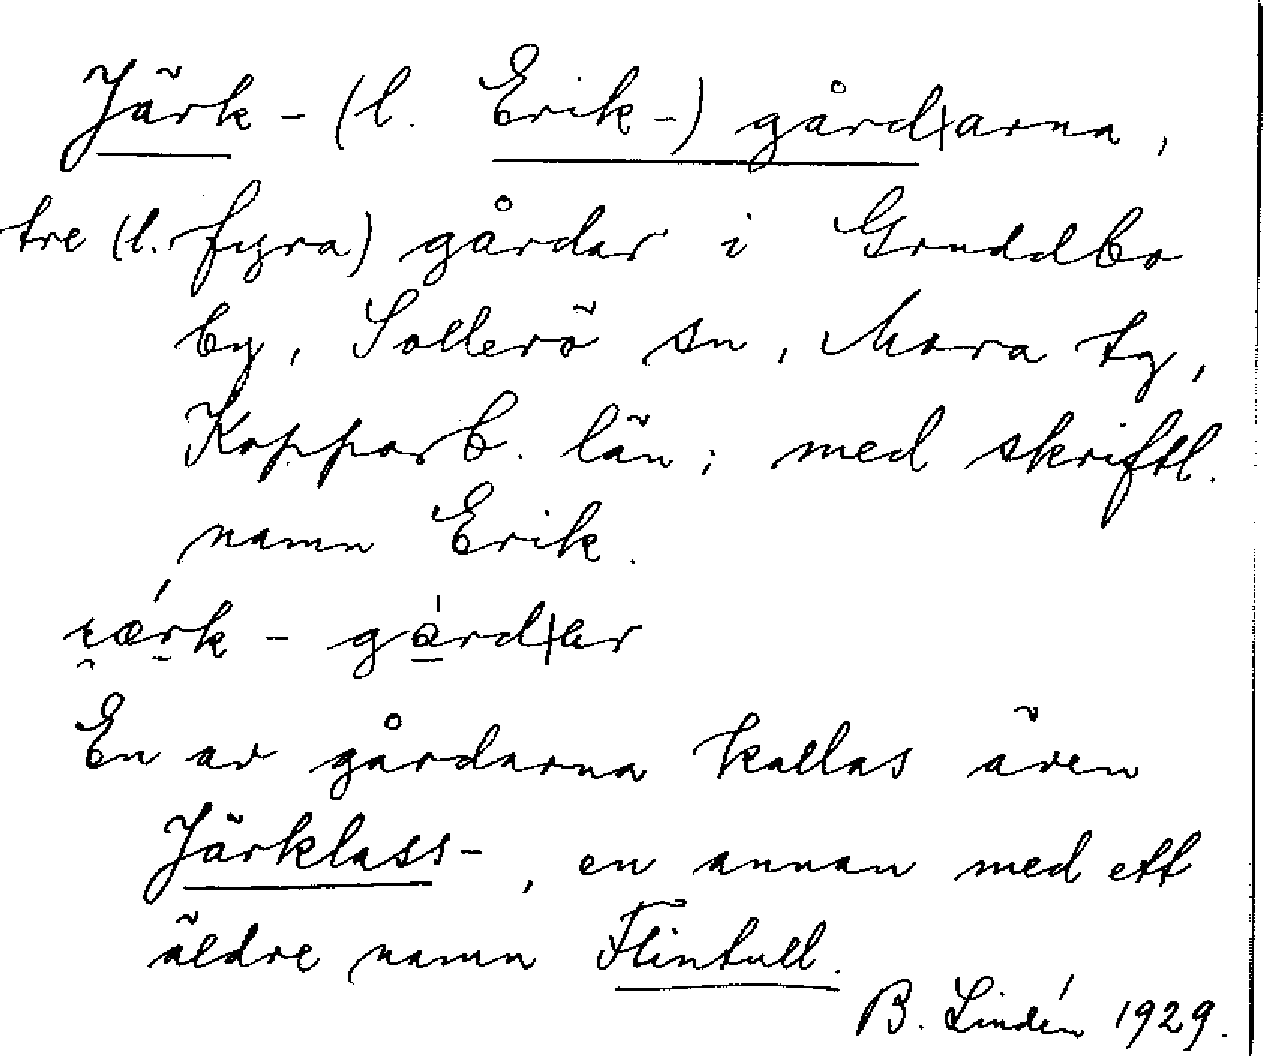 Järk- (l. Erik-) gård|arna,
tre (l. fyra) gårdar i Gruddbo
by, Sollerö sn, Mora tg,
Kopparb. län; med skriftl.
namn Erik.
-gård|ar
En av gårdarna kallas även
Järklass-, en annan med ett
äldre namn Flintull.
B. Lindén 1929.